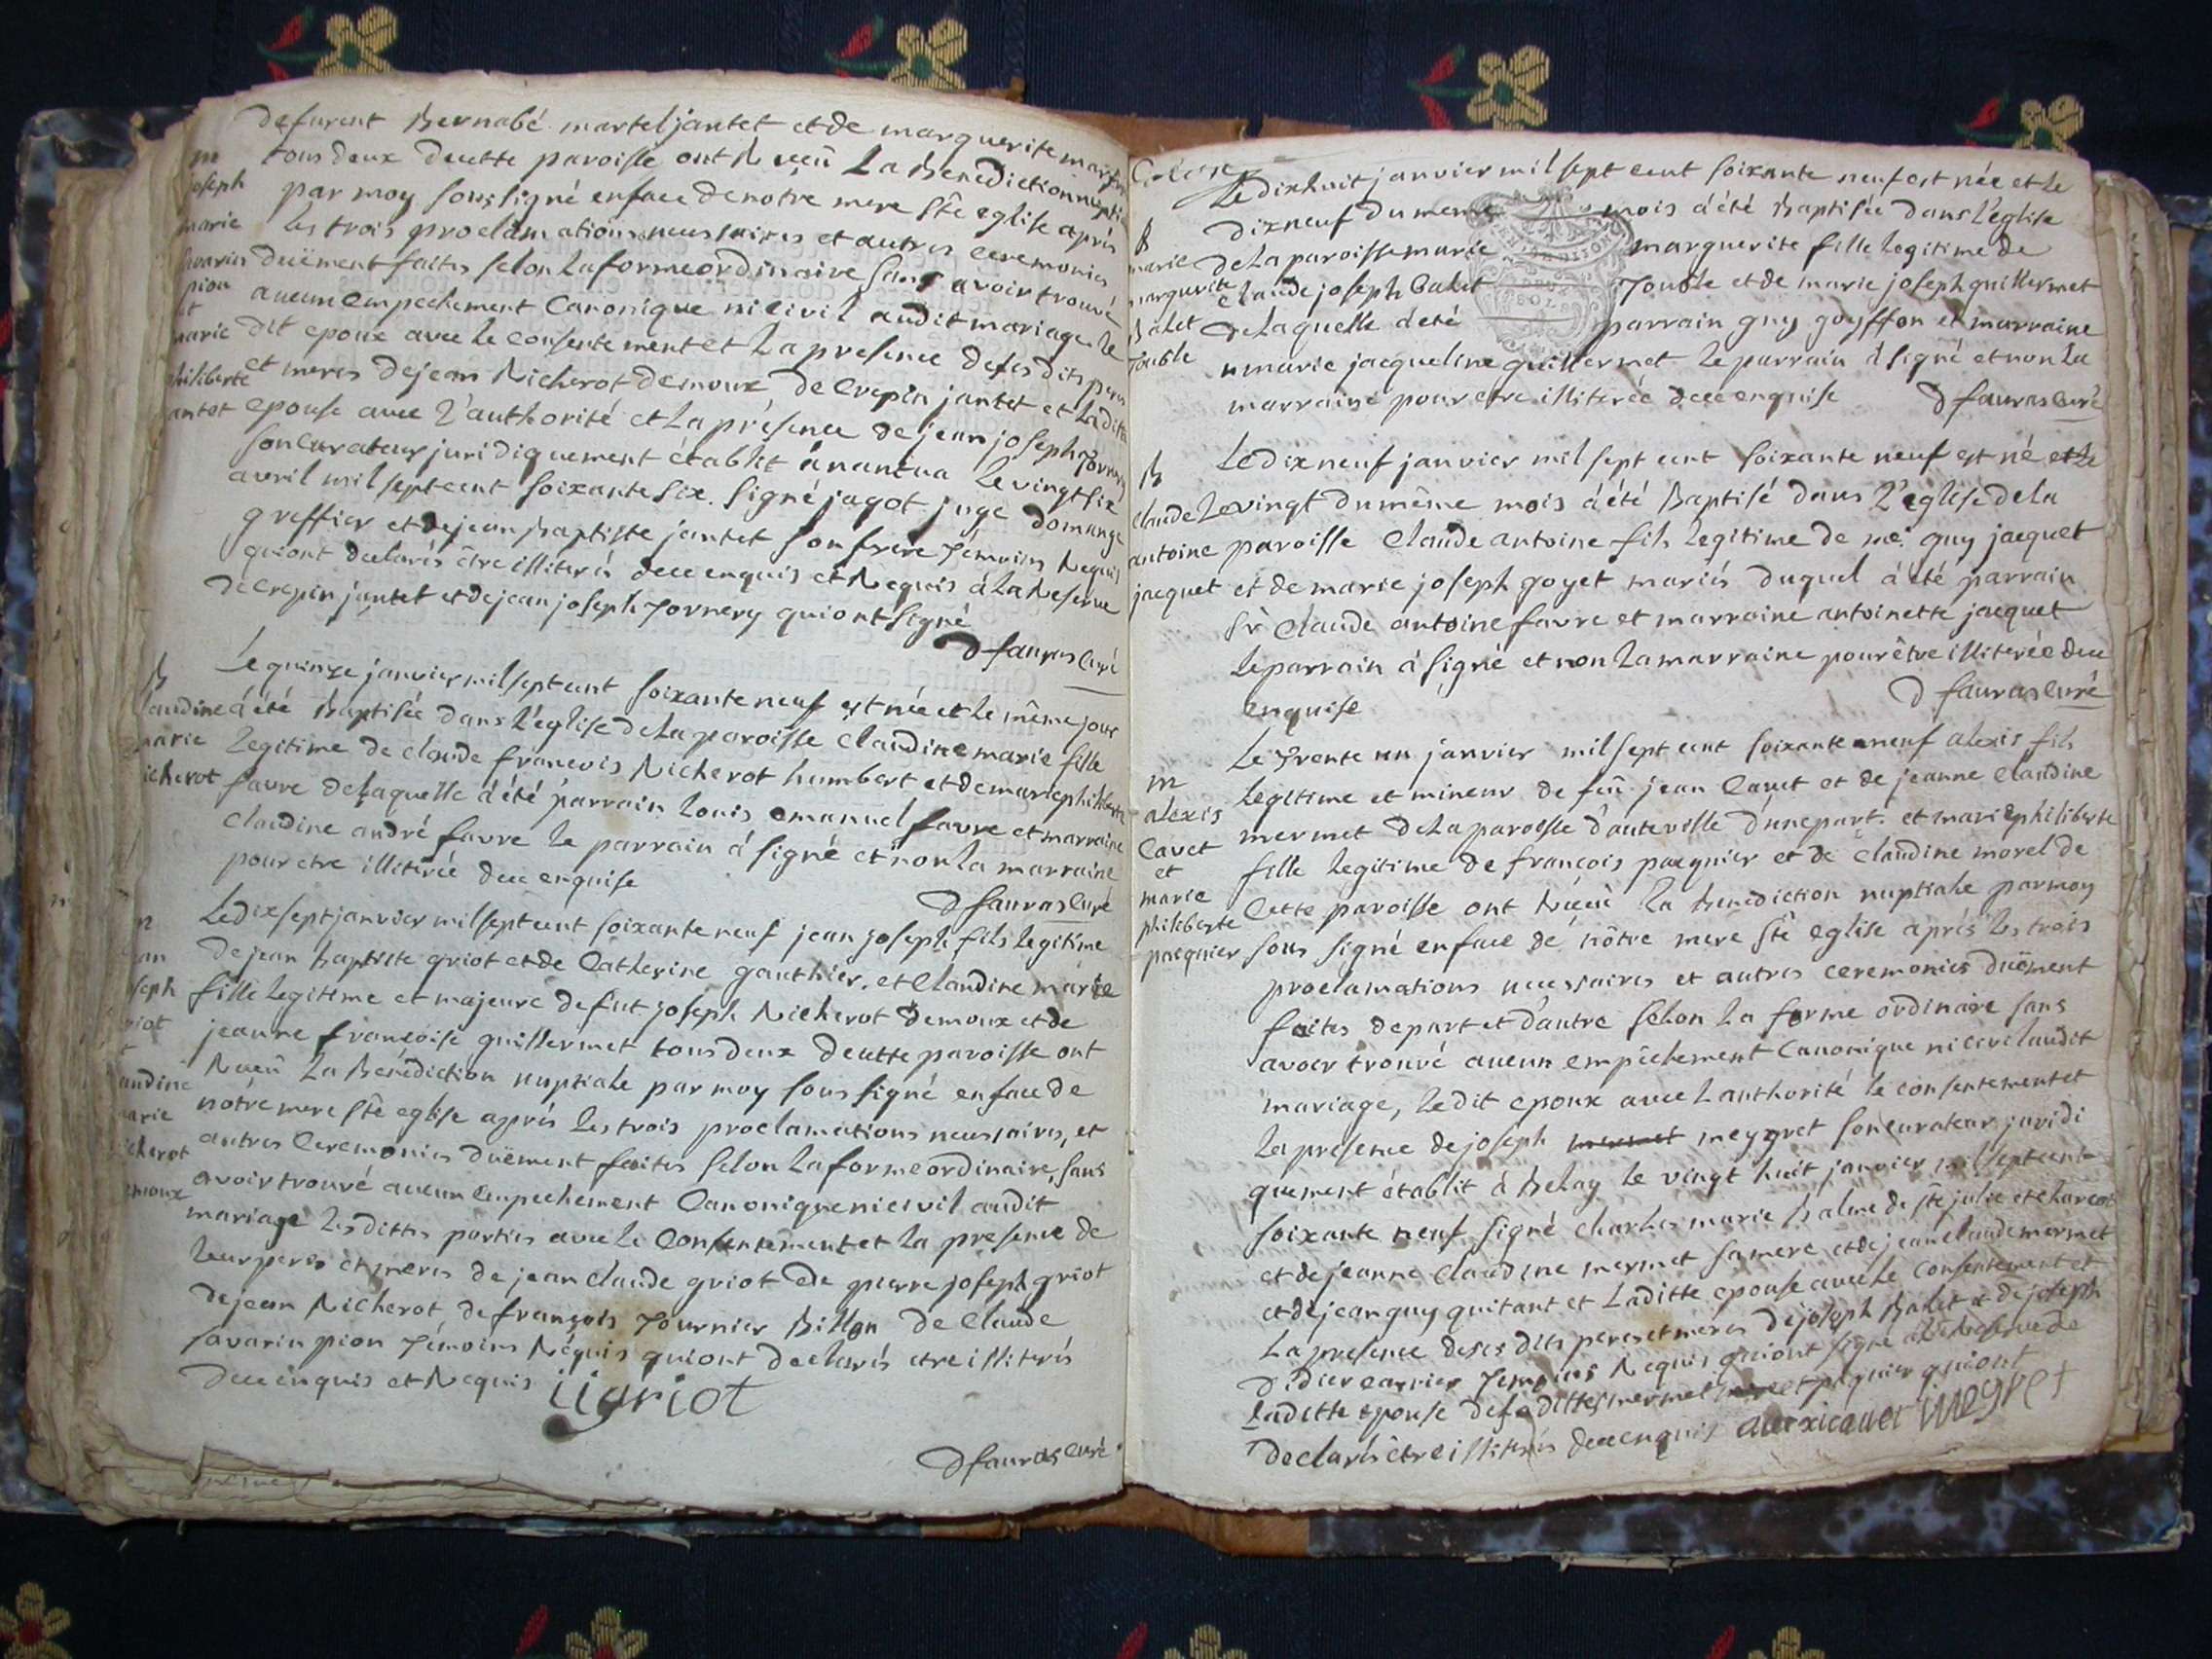 defunt Bernabé martel jantet et de marguerite
m
tous deux de cette paroisse ont Reçeû La Benediction
joseph
par moy soussigné en face de notre mere Ste eglise après
marie
les trois proclamations necessaires et autres ceremonies
savarin
duëment faites selon la forme ordinaire sans avoir trouvé
pion
et
aucun empechement Canonique ni civil audit mariage le
marie
dit epoux avec le consentement et La presence de ses dits peres
philiberte
et meres de jean Nicherot demoux, de Crepin jantet et Ladite
jantet
epouse avec l'authorité et La présence de jean joseph Jornery
son curateur juridiquement établit à nantua le vingt six
avril mil sept cent soixante six. signé jagot juge domange
greffier et de jean Baptiste jantet son frere Témoins Requis
qui ont declarés être illiterés de ce enquis et Requis à La Reserve
de Crepin jantet et de jean joseph Jornery qui ont signé
D favras Curé
B
Le quinze janvier mil sept cent soixante neuf est née et le même jour
claudine
à été Baptisée dans l'eglise de La paroisse Claudine marie fille
marie
Legitime de claude françois Nicherot humbert et de marie philiberte
Nicherot
favre de Laquelle à été parrain Louis emanuel favre et marraine
Claudine andré favre le parrain à signé et non La marraine
pour etre illiterée de ce enquise
D favras Curé
m
Le dix sept janvier mil sept cent soixante neuf jean joseph fils Legitime
jean
de jean Baptiste griot et de Catherine gauthier, et Claudine marie
joseph
fille Legitime et majeure defut joseph Nicherot demoux et de
griot
et
jeanne françoise guillermet tous deux de cette paroisse ont
claudine
Reçeû La Bénédiction nuptiale par moy soussigné en face de
marie
nôtre mere Ste eglise après les trois proclamations necessaires, et
Nicherot
autres Ceremonies duëment faites selon La forme ordinaire, sans
demoux
avoir trouvé aucun empechement Canonique ni civil audit
mariage les dittes parties avec le Consentement et La presence de
leur peres et meres de jean claude griot de pierre joseph griot
de jean Nicherot, de françois Tournier Billon de Claude
savarin pion Témoins Réquis qui ont declarés etre illiterés
de ce enquis et Requis
jjgriot
D favras Curé
Le dixhuit janvier mil sept cent soixante neuf est née et le
B
dixneuf du meme mois à été Baptisée dans l'église
marie
de La paroisse marie marguerite fille Legitime de
marguerite
Claude joseph Balet Jouble et de marie joseph guillermet
Balet
de Laquelle à été parrain guy goyffon et marraine
Jouble
marie jacqueline guillermet le parrain à signé et non La
marraine pour etre illiterée de ce enquise
D favras Curé
B
Le dixneuf janvier mil sept cent soixante neuf est né et Le
claude
Le vingt du même mois à été Baptisé dans l'eglise de La
antoine
paroisse Claude antoine fils Legitime de me. guy jacquet
jacquet
et de marie joseph goyet mariés duquel à été parrain
Sr Claude antoine favre et marraine antoinette jacquet
le parrain à signé et non La marraine pour être illiterée de ce
enquise
D favras Curé
m
Le Trente un janvier mil sept cent soixante neuf alexis fils
alexis
Legitime et mineur de feû jean Cavet et de jeanne Claudine
Cavet
mermet de La paroisse d'auteville d'une part. et marie philiberte
et
marie
fille Legitime de françois pacgnier et de Claudine morel de
philiberte
Cette paroisse ont Réceû La Benediction nuptiale par moy
pacgnier
sous signé en face de nôtre mere Ste eglise après les trois
proclamations necessaires et autres ceremonies duëment
faites de part et d'autre selon La forme ordinaire sans
avoir trouvé aucun empêchement Canonique ni civil audit
mariage, Le dit epoux avec L'authorité le consentement et
La presence de joseph mermet meygret son curateur juridi
quement établit à Belay le vingt huit janvier mil sept cent
soixante neuf signé Charles marie Balme de Ste julie et
et de jeanne claudine mermet sa mere et de jean claude mermet
et de jean guy guitant et Laditte epouse avec le Consentement et
La presence de ses dits peres et meres de joseph Balet et de joseph
Didier carrier Temoins Requis qui ont signé à La Reserve de
Laditte epouse desdittes mermet et pagnier qui ont
Declarés être illiterés de ce enquis alexi cavet megret